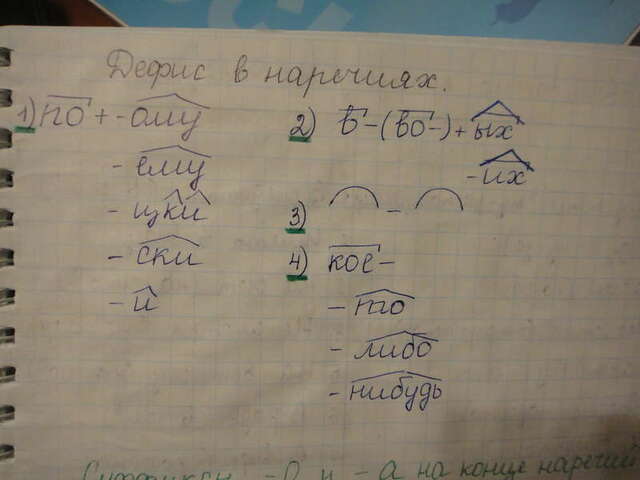 Дефис в наречиях.
1) по + -ому
-ему
-цки
-ски
-и
2) в-(во-)+ых
-их
3) -
4) кое-
-то
-либо
-нибудь
Суффиксы -о и -а на конце наречий